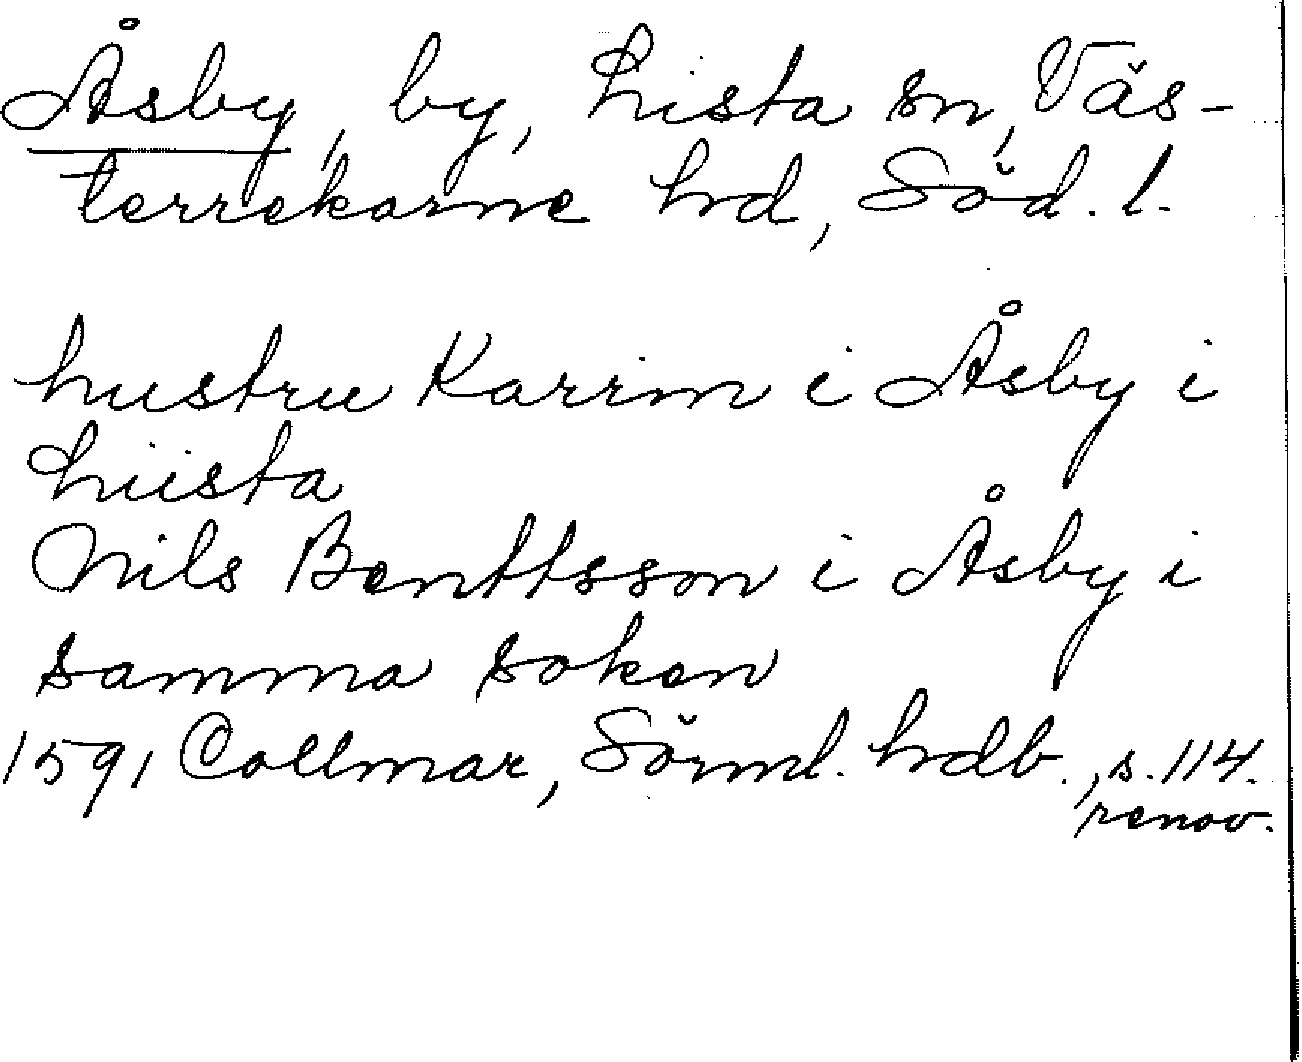 Åsby, by, Lista sn, Väs-
terrekarne hd, Söd. l.
hustru Karrin i Åsby i
Liista
Nils Benttsson i Åsby i
samma soken
1591 Collmar, Sörml. hdb., s. 114.
renov.